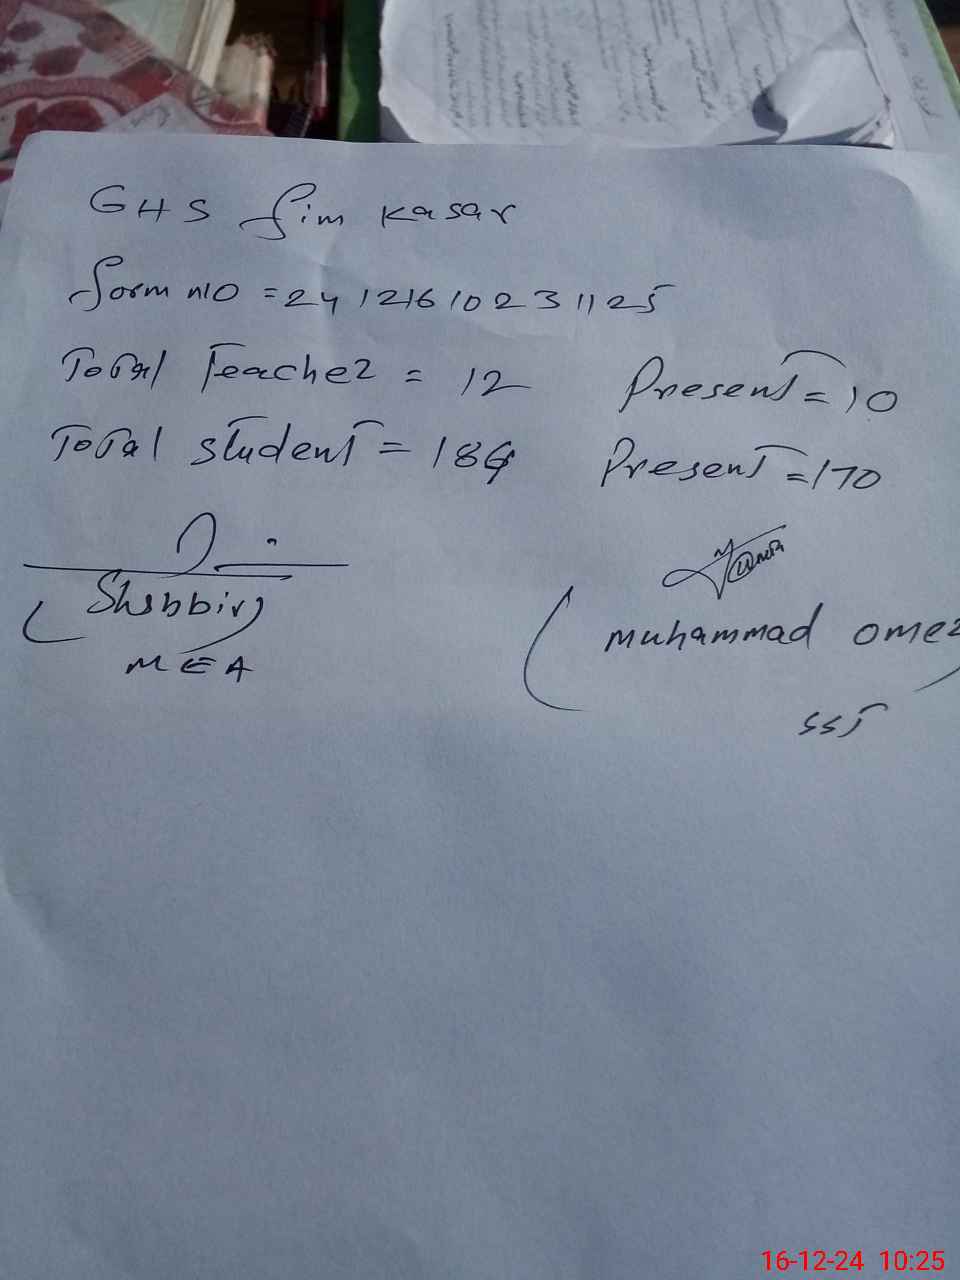 GHS Jim Kasar
Form NO = 24121610231125
Total Teacher = 12 Present = 10
Total student = 184 Present = 170
(Shabbir) (Muhammad Omer)
MEA SST
16-12-24 10:25